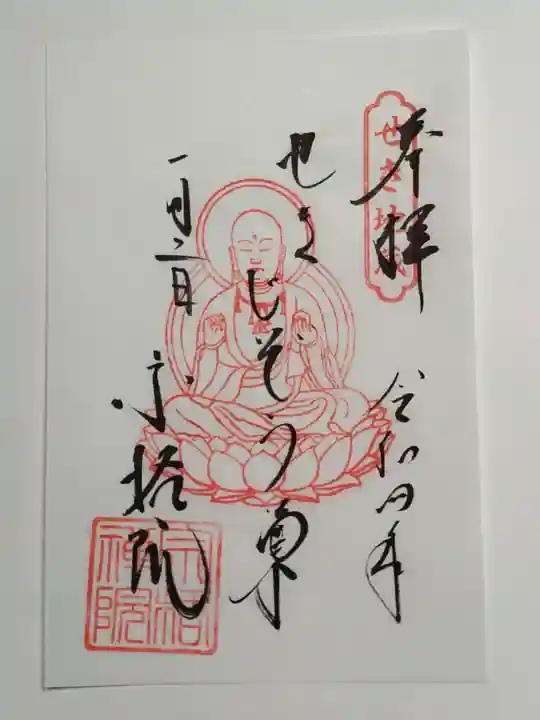 せき地蔵
奉拝
令和四年
せきじぞう尊
一月二日
宗格院
宗格
禅院